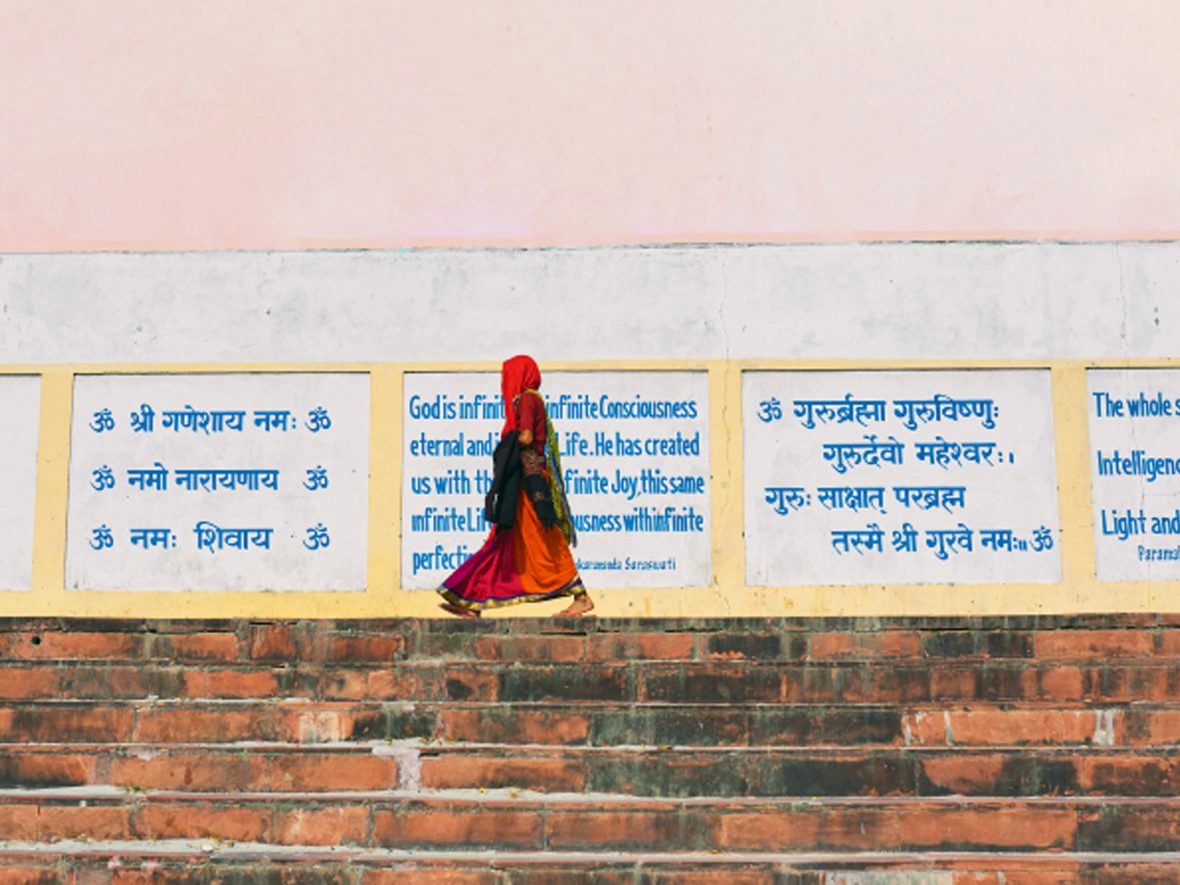 ॐ श्री गणेशाय नमः ॐ
ॐ नमो नारायणाय ॐ
ॐ नमः शिवाय ॐ
God is infinite infinite Consciousness
eternal and Life. He has created
us with finite Joy, this same
infinite within infinite
Saraswati
ॐ गुरुर्ब्रह्मा गुरुविष्णुः
गुरुर्देवो महेश्वरः।
गुरुः साक्षात् परब्रह्म
तस्मै श्री गुरवे नमः॥ॐ
The whole
Light and